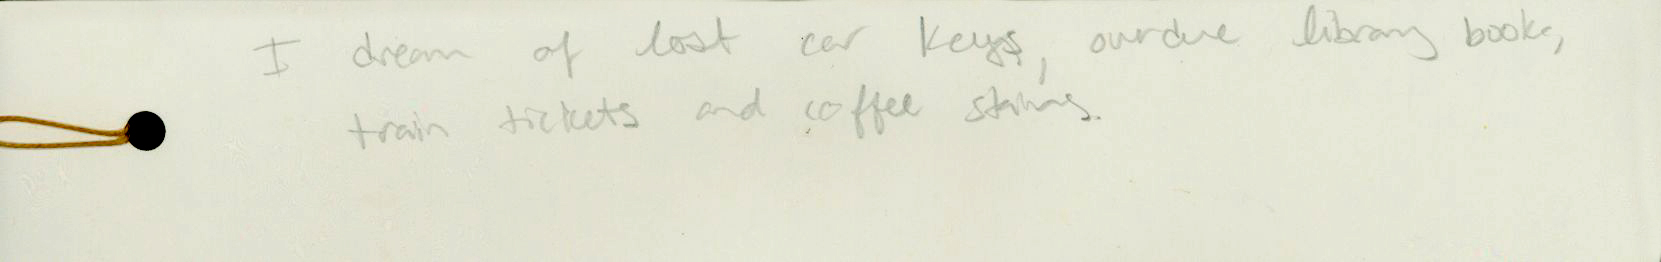 I dream of lost car keys, overdue library books,
train tickets and coffee stains.